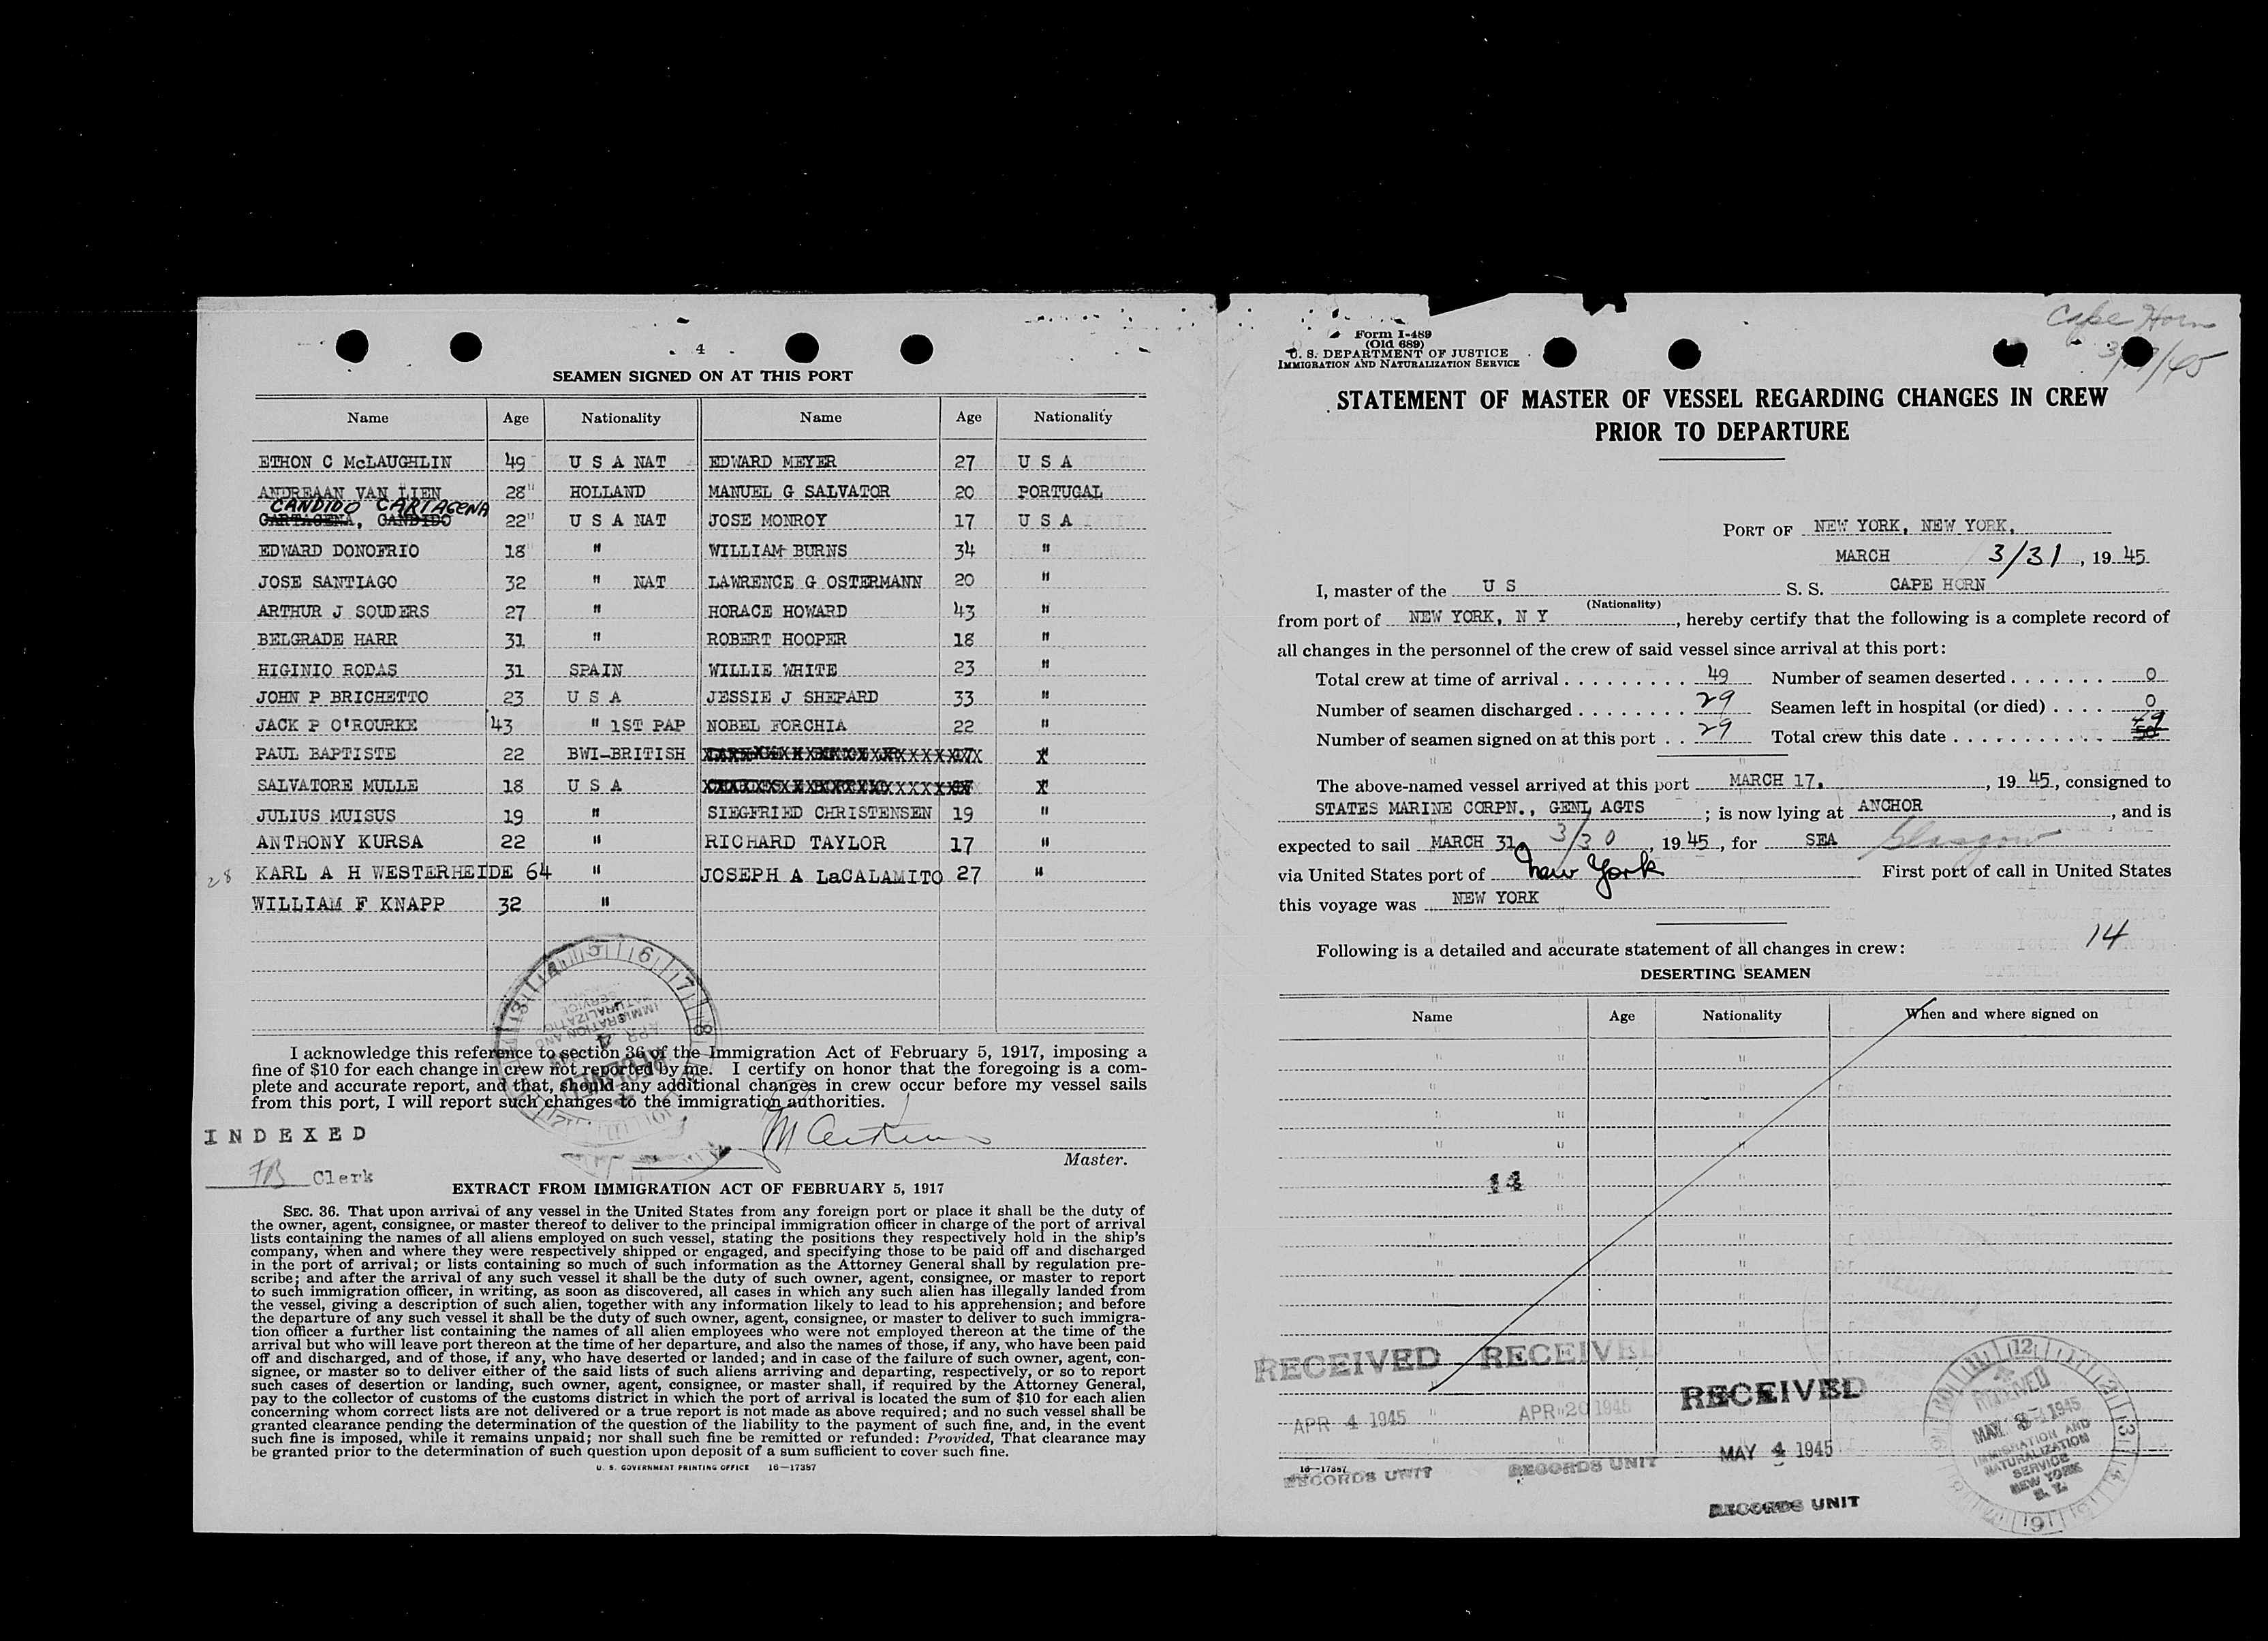 4
SEAMEN SIGNED ON AT THIS PORT
Name Age Nationality Name Age Nationality
ETHON C McLAUGHLIN 49 U S A NAT EDWARD MEYER 27 U S A
ANDREAAN VAN LIEN 28 HOLLAND MANUEL G SALVATOR 20 PORTUGAL
CANDIDO CARTAGENA
CARTAGENA, CANDIDO 22 U S A NAT JOSE MONROY 17 U S A
EDWARD DONOFRIO 18 " WILLIAM BURNS 34 "
JOSE SANTIAGO 32 " NAT LAWRENCE G OSTERMANN 20 "
ARTHUR J SOUDERS 27 " HORACE HOWARD 43 "
BELGRADE HARR 31 " ROBERT HOOPER 18 "
HIGINIO RODAS 31 SPAIN WILLIE WHITE 23 "
JOHN P BRICHETTO 23 U S A JESSIE J SHEPARD 33 "
JACK P O'ROURKE 43 " 1ST PAP NOBEL FORCHIA 22 "
PAUL BAPTISTE 22 BWI-BRITISH
SALVATORE MULLE 18 U S A
JULIUS MUISUS 19 " SIEGFRIED CHRISTENSEN 19 "
ANTHONY KURSA 22 " RICHARD TAYLOR 17 "
28 KARL A H WESTERHEIDE 64 " JOSEPH A LaCALAMITO 27 "
WILLIAM F KNAPP 32 "
I acknowledge this reference to section 36 of the Immigration Act of February 5, 1917, imposing a
fine of $10 for each change in crew not reported by me. I certify on honor that the foregoing is a com-
plete and accurate report, and that, should any additional changes in crew occur before my vessel sails
from this port, I will report such changes to the immigration authorities.
INDEXED
Master.
FB Clerk
EXTRACT FROM IMMIGRATION ACT OF FEBRUARY 5, 1917
SEC. 36. That upon arrival of any vessel in the United States from any foreign port or place it shall be the duty of
the owner, agent, consignee, or master thereof to deliver to the principal immigration officer in charge of the port of arrival
lists containing the names of all aliens employed on such vessel, stating the positions they respectively hold in the ship's
company, when and where they were respectively shipped or engaged, and specifying those to be paid off and discharged
in the port of arrival; or lists containing so much of such information as the Attorney General shall by regulation pre-
scribe; and after the arrival of any such vessel it shall be the duty of such owner, agent, consignee, or master to report
to such immigration officer, in writing, as soon as discovered, all cases in which any such alien has illegally landed from
the vessel, giving a description of such alien, together with any information likely to lead to his apprehension; and before
the departure of any such vessel it shall be the duty of such owner, agent, consignee, or master to deliver to such immigra-
tion officer a further list containing the names of all alien employees who were not employed thereon at the time of the
arrival but who will leave port thereon at the time of her departure, and also the names of those, if any, who have been paid
off and discharged, and of those, if any, who have deserted or landed; and in case of the failure of such owner, agent, con-
signee, or master so to deliver either of the said lists of such aliens arriving and departing, respectively, or so to report
such cases of desertion or landing, such owner, agent, consignee, or master shall, if required by the Attorney General,
pay to the collector of customs of the customs district in which the port of arrival is located the sum of $10 for each alien
concerning whom correct lists are not delivered or a true report is not made as above required; and no such vessel shall be
granted clearance pending the determination of the question of the liability to the payment of such fine, and, in the event
such fine is imposed, while it remains unpaid; nor shall such fine be remitted or refunded: Provided, That clearance may
be granted prior to the determination of such question upon deposit of a sum sufficient to cover such fine.
U. S. GOVERNMENT PRINTING OFFICE 16—17387
Cape Horn
Form I-489
(Old 689)
U. S. DEPARTMENT OF JUSTICE
IMMIGRATION AND NATURALIZATION SERVICE
STATEMENT OF MASTER OF VESSEL REGARDING CHANGES IN CREW
PRIOR TO DEPARTURE
PORT OF NEW YORK, NEW YORK,
MARCH 3/31, 19 45
I, master of the U S S. S. CAPE HORN
(Nationality)
from port of NEW YORK, N Y, hereby certify that the following is a complete record of
all changes in the personnel of the crew of said vessel since arrival at this port:
Total crew at time of arrival 49 Number of seamen deserted 0
Number of seamen discharged 29 Seamen left in hospital (or died) 0
Number of seamen signed on at this port 29 Total crew this date 49
The above-named vessel arrived at this port MARCH 17, 19 45, consigned to
STATES MARINE CORPN., GENL AGTS; is now lying at ANCHOR, and is
expected to sail MARCH 31, 3/30, 19 45, for SEA Glasgow
via United States port of New York First port of call in United States
this voyage was NEW YORK
Following is a detailed and accurate statement of all changes in crew: 14
DESERTING SEAMEN
Name Age Nationality When and where signed on
14
RECEIVED RECEIVED RECEIVED
APR 4 1945 APR 20 1945 MAY 4 1945
16—17387
RECORDS UNIT RECORDS UNIT RECORDS UNIT
RECEIVED
MAY 1945
IMMIGRATION AND
NATURALIZATION
SERVICE
NEW YORK
N. Y.